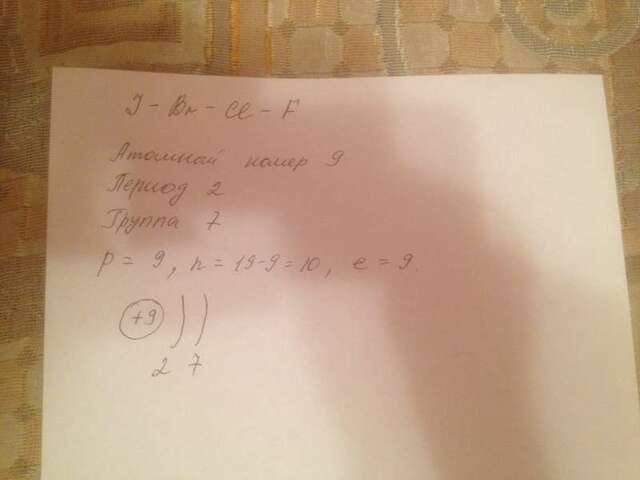 J - Br - Cl - F
Атомный номер 9
Период 2
Группа 7
p = 9, n = 19-9 = 10, e = 9.
+9 ) )
2 7